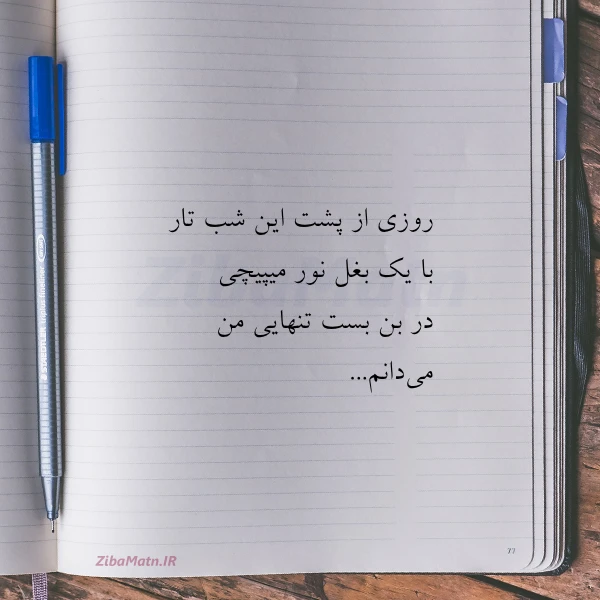 روزی از پشت این شب تار
با یک بغل نور میپیچی
در بن بست تنهایی من
می‌دانم...
ZibaMatn
ZibaMatn.IR
77